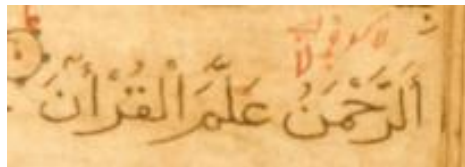 اَلرَّحْمَنُ عَلَّمَ الْقُرْأٰنَ